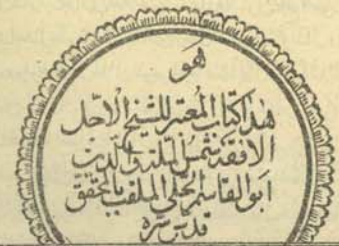 هو
هذا کتاب المعتبر للشیخ الاجل
الافقه شمس الملة والدین
ابو القاسم الحلی الملقب بالمحقق
قدس سره